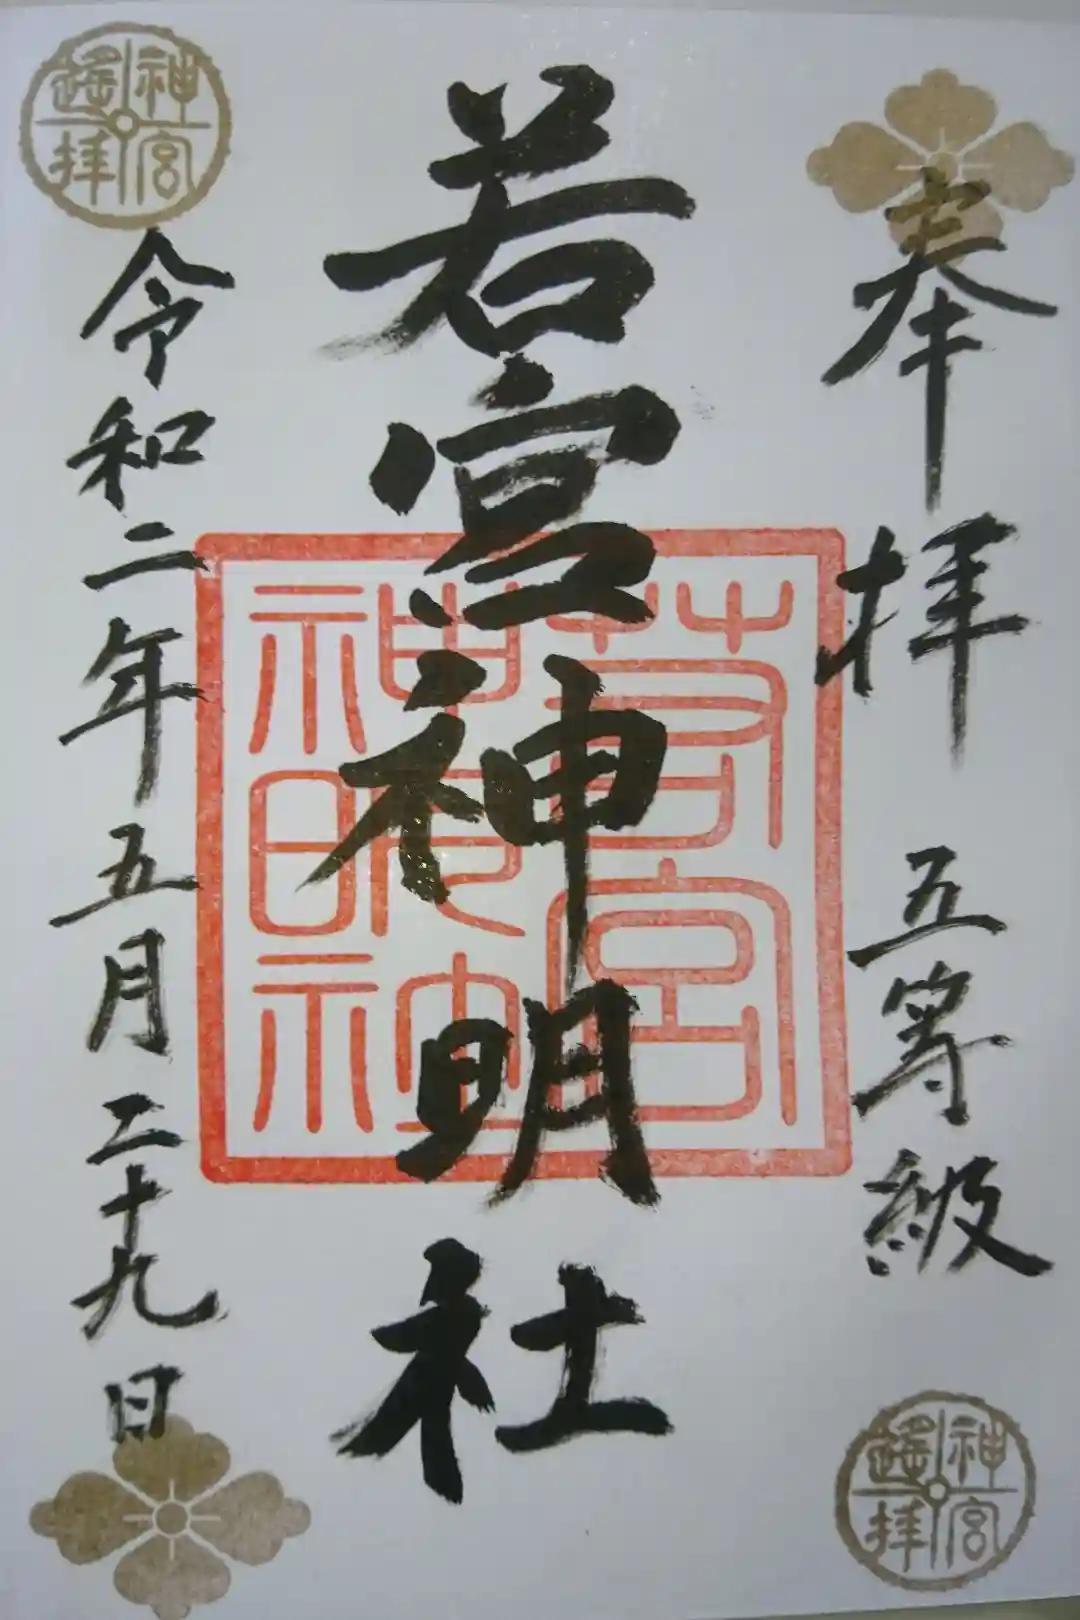 奉拝 五尊級
若宮神明社
令和二年五月二十九日
神宮遙拝
若宮神明社
神宮遙拝